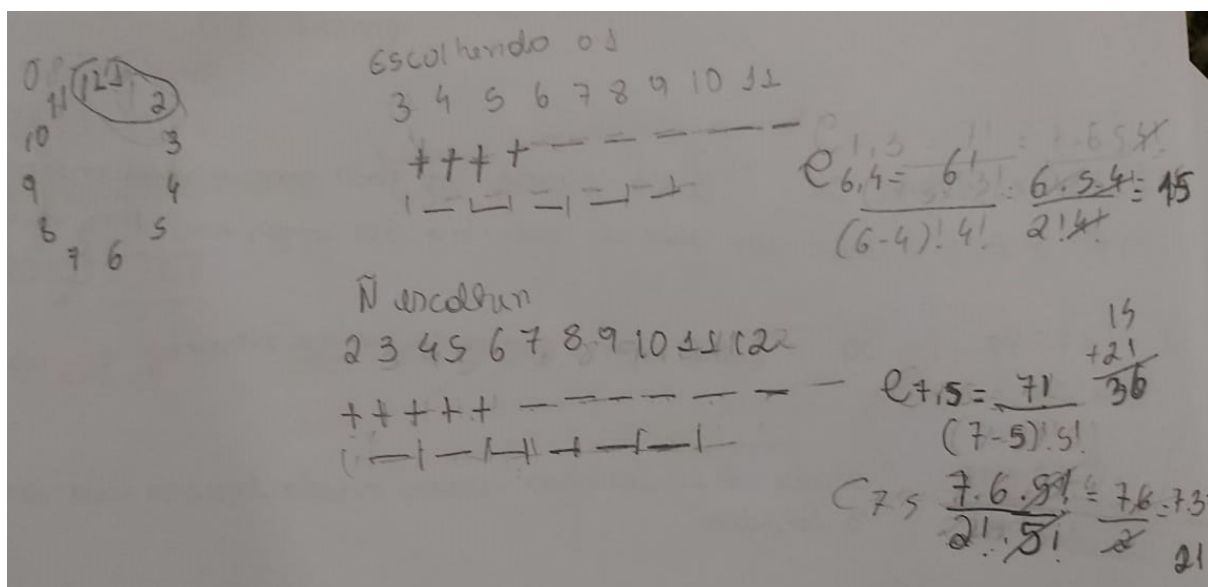 12 1
11 2
10 3
9 4
8 5
7 6
Escolhendo o 1
3 4 5 6 7 8 9 10 11
+ + + + - - - - - -
C6,4 = 6! / (6-4)! 4! = 6.5.4! / 2! 4! = 15
Ñ escolher
2 3 4 5 6 7 8 9 10 11 12
+ + + + + - - - - - - -
C7,5 = 7! / (7-5)! 5!
15
+21
36
C7 5 7.6.5! / 2!.5! = 7.6 / 2 = 7.3
21